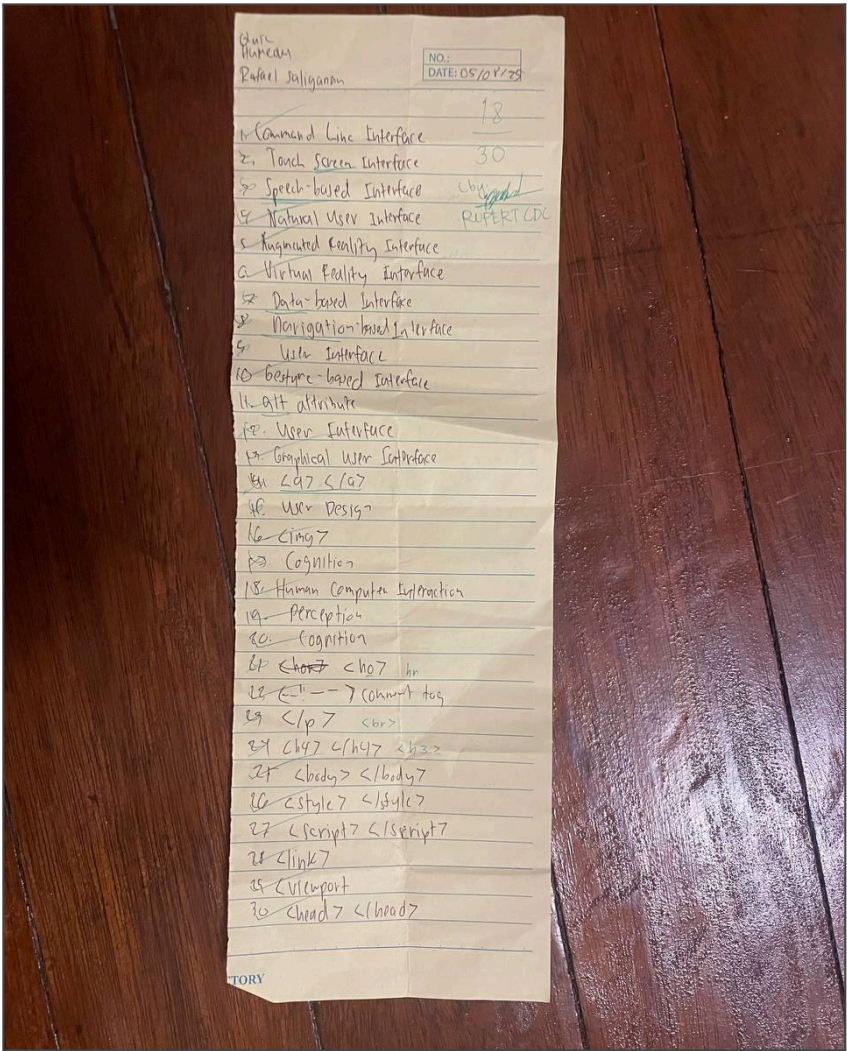 Quiz
Rafael Saliganan
NO.:
DATE: 05/08/25
18
30
1. Command Line Interface
2. Touch Screen Interface
3. Speech-based Interface
by
RUPERT CDC
4. Natural User Interface
5. Augmented Reality Interface
6. Virtual Reality Interface
7. Data-based Interface
8. Navigation-based Interface
9. User Interface
10 Gesture-based Interface
11. alt attribute
12. User Interface
13. Graphical User Interface
14. <a> </a>
15. User Design
16 <img>
17 Cognition
18. Human Computer Interaction
19. Perception
20. Cognition
21 <ho> hr
22 <--!--> comment tag
23 </p> <br>
24 <h4> </h4> <h3>
25 <body> </body>
26 <style> </style>
27 <script> </script>
28 <link>
29 <viewport
30 <head> </head>
TORY